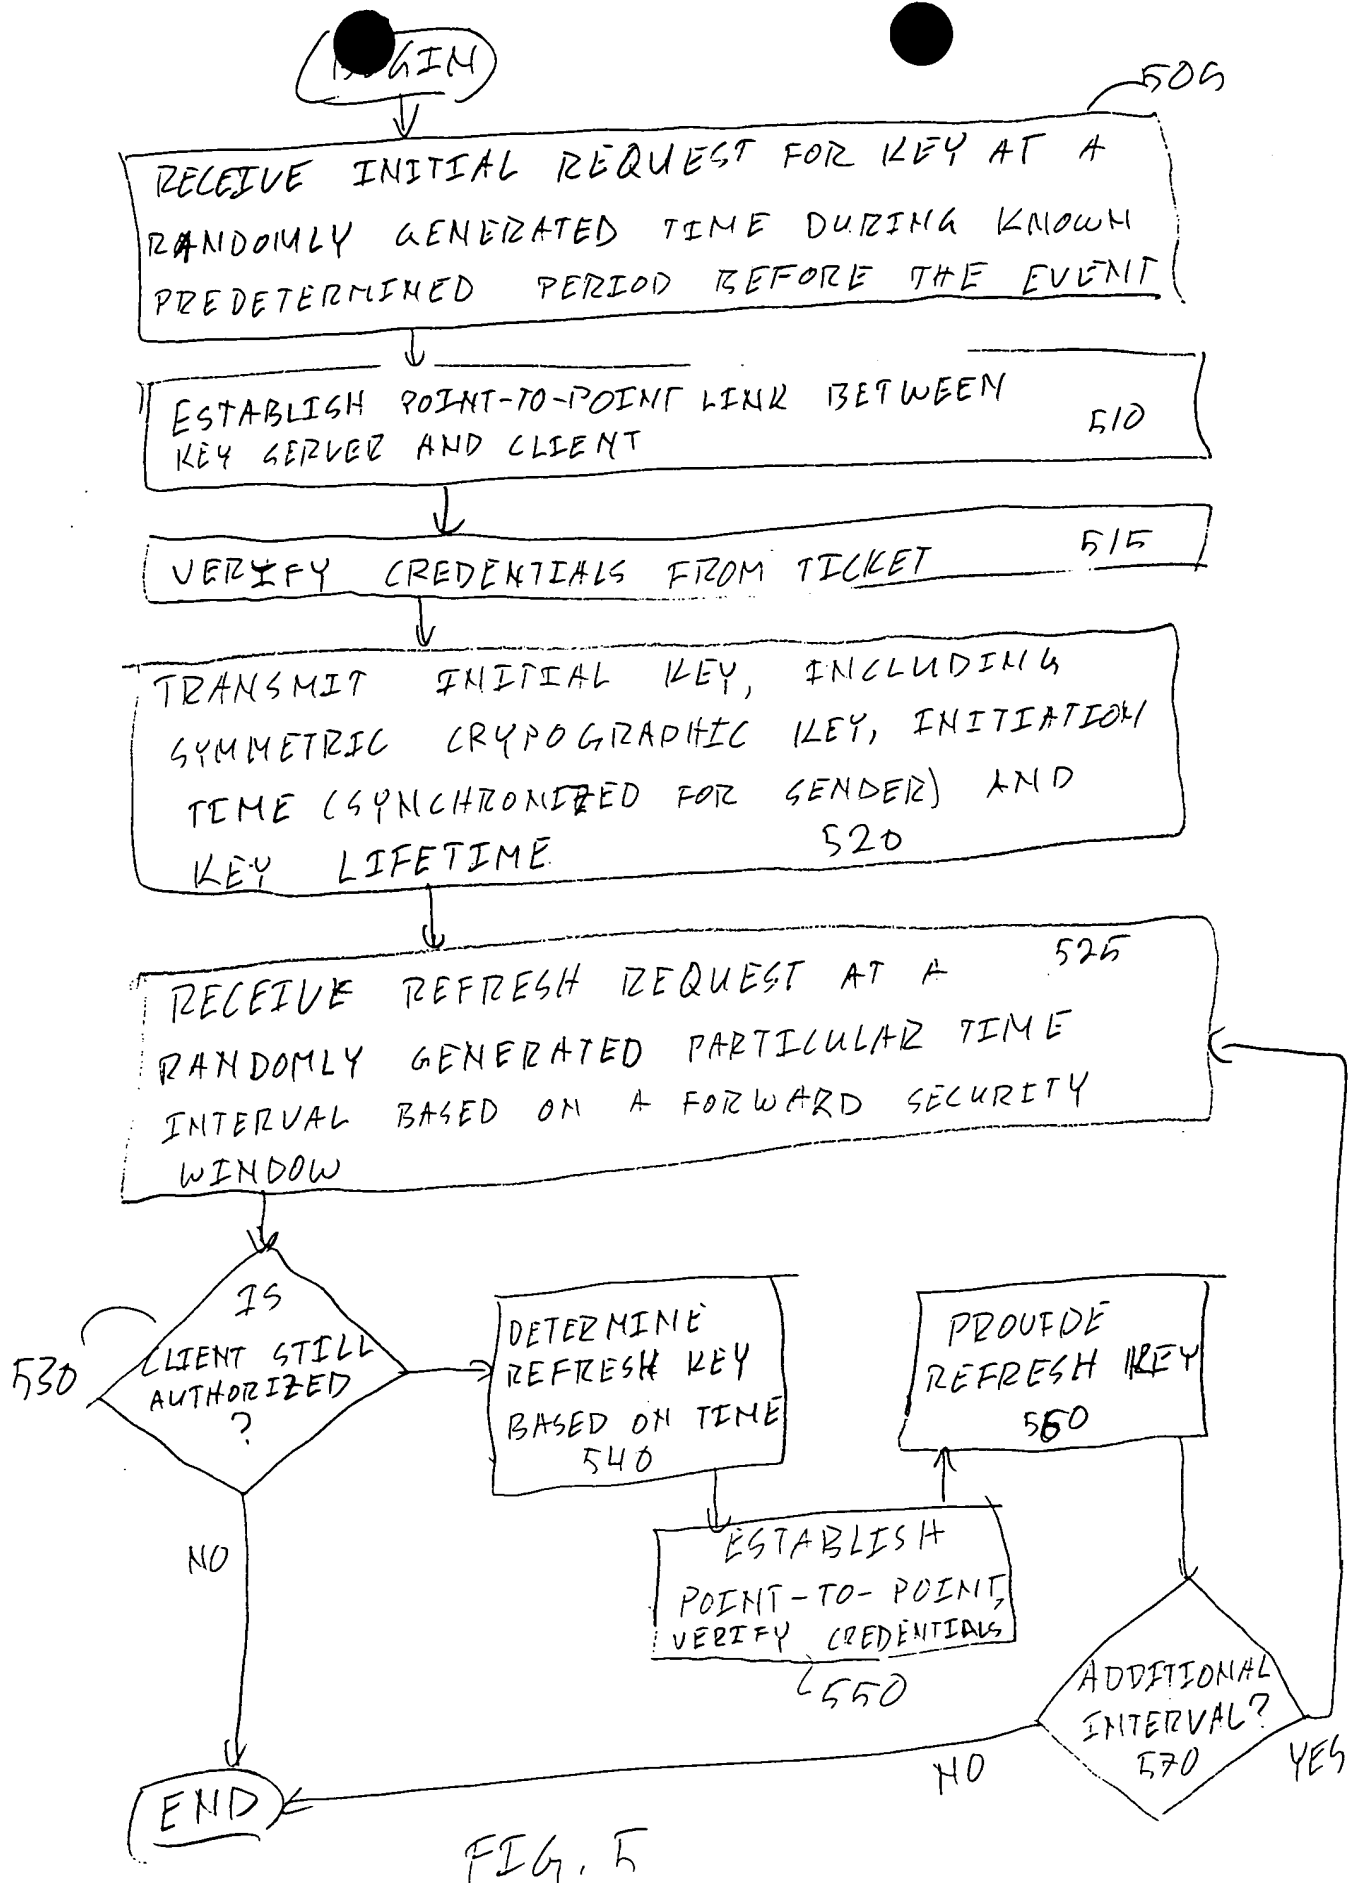 BEGIN
505
RECEIVE INITIAL REQUEST FOR KEY AT A
RANDOMLY GENERATED TIME DURING KNOWN
PREDETERMINED PERIOD BEFORE THE EVENT
ESTABLISH POINT-TO-POINT LINK BETWEEN
KEY SERVER AND CLIENT
510
VERIFY CREDENTIALS FROM TICKET
515
TRANSMIT INITIAL KEY, INCLUDING
SYMMETRIC CRYPOGRAPHIC KEY, INITIATION
TIME (SYNCHRONIZED FOR SENDER) AND
KEY LIFETIME
520
525
RECEIVE REFRESH REQUEST AT A
RANDOMLY GENERATED PARTICULAR TIME
INTERVAL BASED ON A FORWARD SECURITY
WINDOW
530
IS
CLIENT STILL
AUTHORIZED
?
NO
DETERMINE
REFRESH KEY
BASED ON TIME
540
ESTABLISH
POINT-TO-POINT,
VERIFY CREDENTIALS
550
PROVIDE
REFRESH KEY
560
ADDITIONAL
INTERVAL?
570
YES
NO
END
FIG. 5